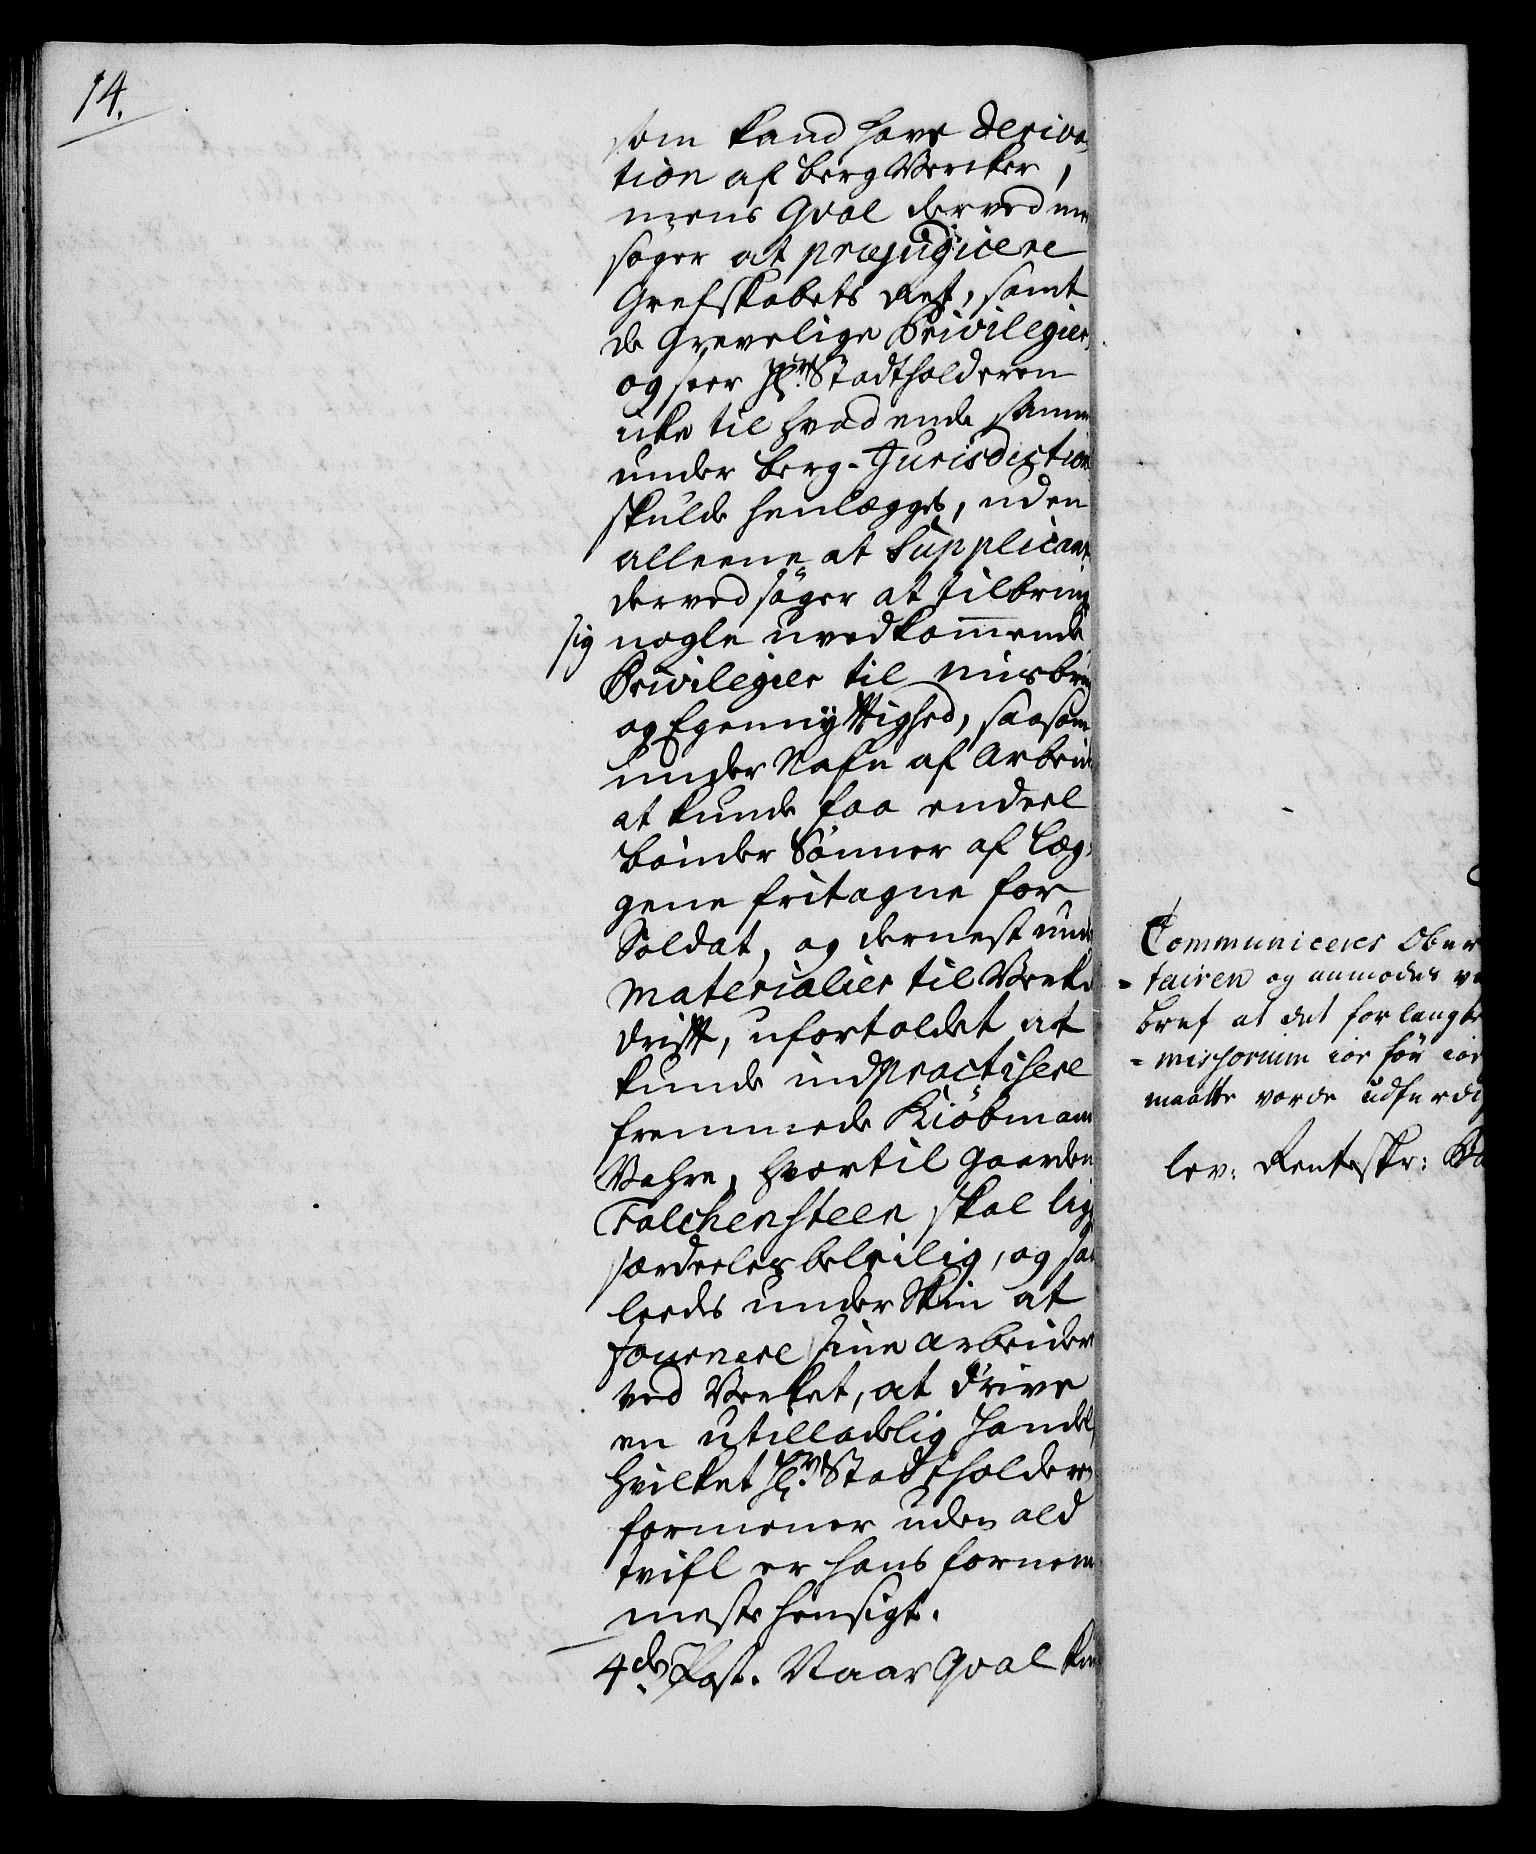 14.
som kand have Deriva,
tion af Berg Vercker,
mens Qval derved
søger at præjudicere
Grefskabets Ret, samt
de Grevelige Privilegier,
og seer Hr. Stadtholderen
icke til hvad ende samme
under Berg-Jurisdiction
skulde henlægges, uden
alleene at Supplicant
derved søger at tilbring
sig nogle uvedkommende
Privilegier til misbrug
og Egennyttighed, saasom
under Nafn af Arbeid
at kunde faa endeel
Bønder Sønner af Læg,
gene fritagne for
Soldat, og dernest und
Materialier til Verke
drift, ufortoldet at
kunde indpractisere
fremmede Kiøbmand
Vahre, hvortil gaarden
Falchensteen skal ligg
særdeles beleilig, og saa
leeds under Skin at
fournere sine arbeider
ved Verket, at drive
en utilladelig Handel,
hvilket Hr. Stadtholderen
formener uden ald
tvifl er hans fornem
meste hensigt.
4de Post. Naar Qval
Communiceres Ober
=tairen og anmodes ve
Bref at det forlangte
=missorium jo før jo
maatte vorde udferdig
lev: Renteskr: